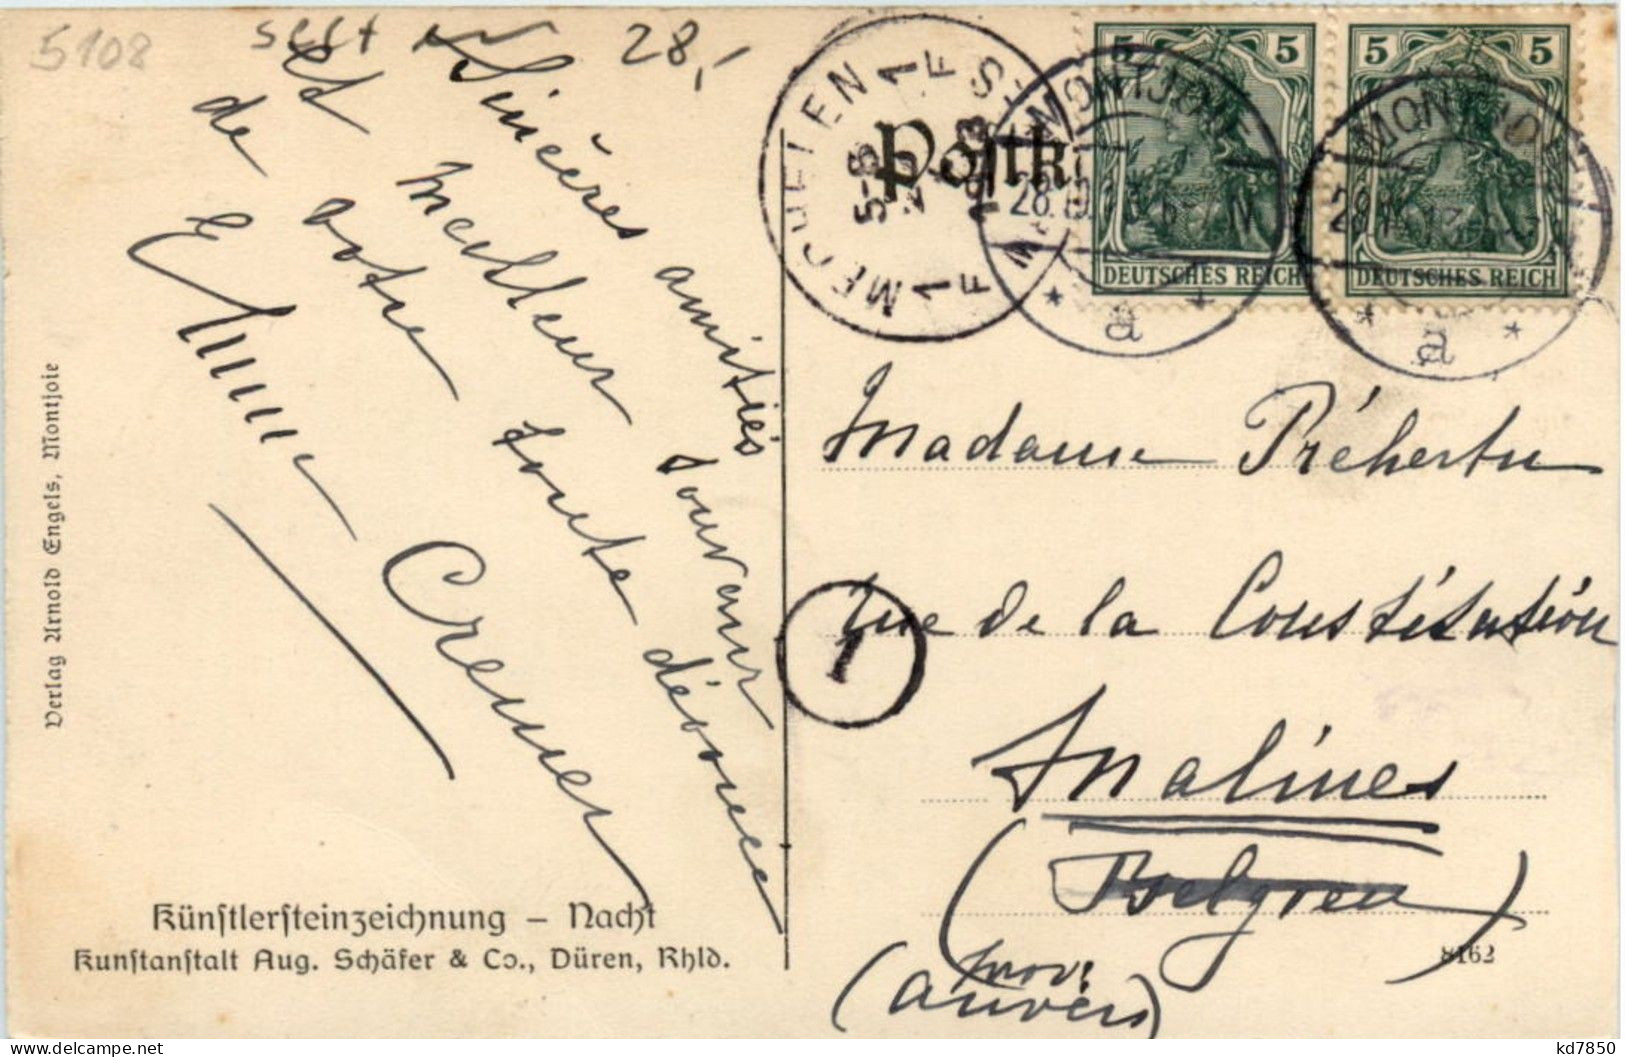 5108
sect 28,-
Sincères amitiés
et meilleur souvenir
de votre toute dévouée
Emma Cremer
Verlag Arnold Engels, Montjoie
Künstlersteinzeichnung – Nacht
Kunstanstalt Aug. Schäfer & Co., Düren, Rhld.
MECHELEN
1F
1F
Postk
MONTJOIE
28.10.
a
MONTJOIE
a
5 5
DEUTSCHES REICH
5 5
DEUTSCHES REICH
1
Madame Préherbu
rue de la Constitution
Malines
(Belgien)
(prov.
anvers)
8162
kd7850